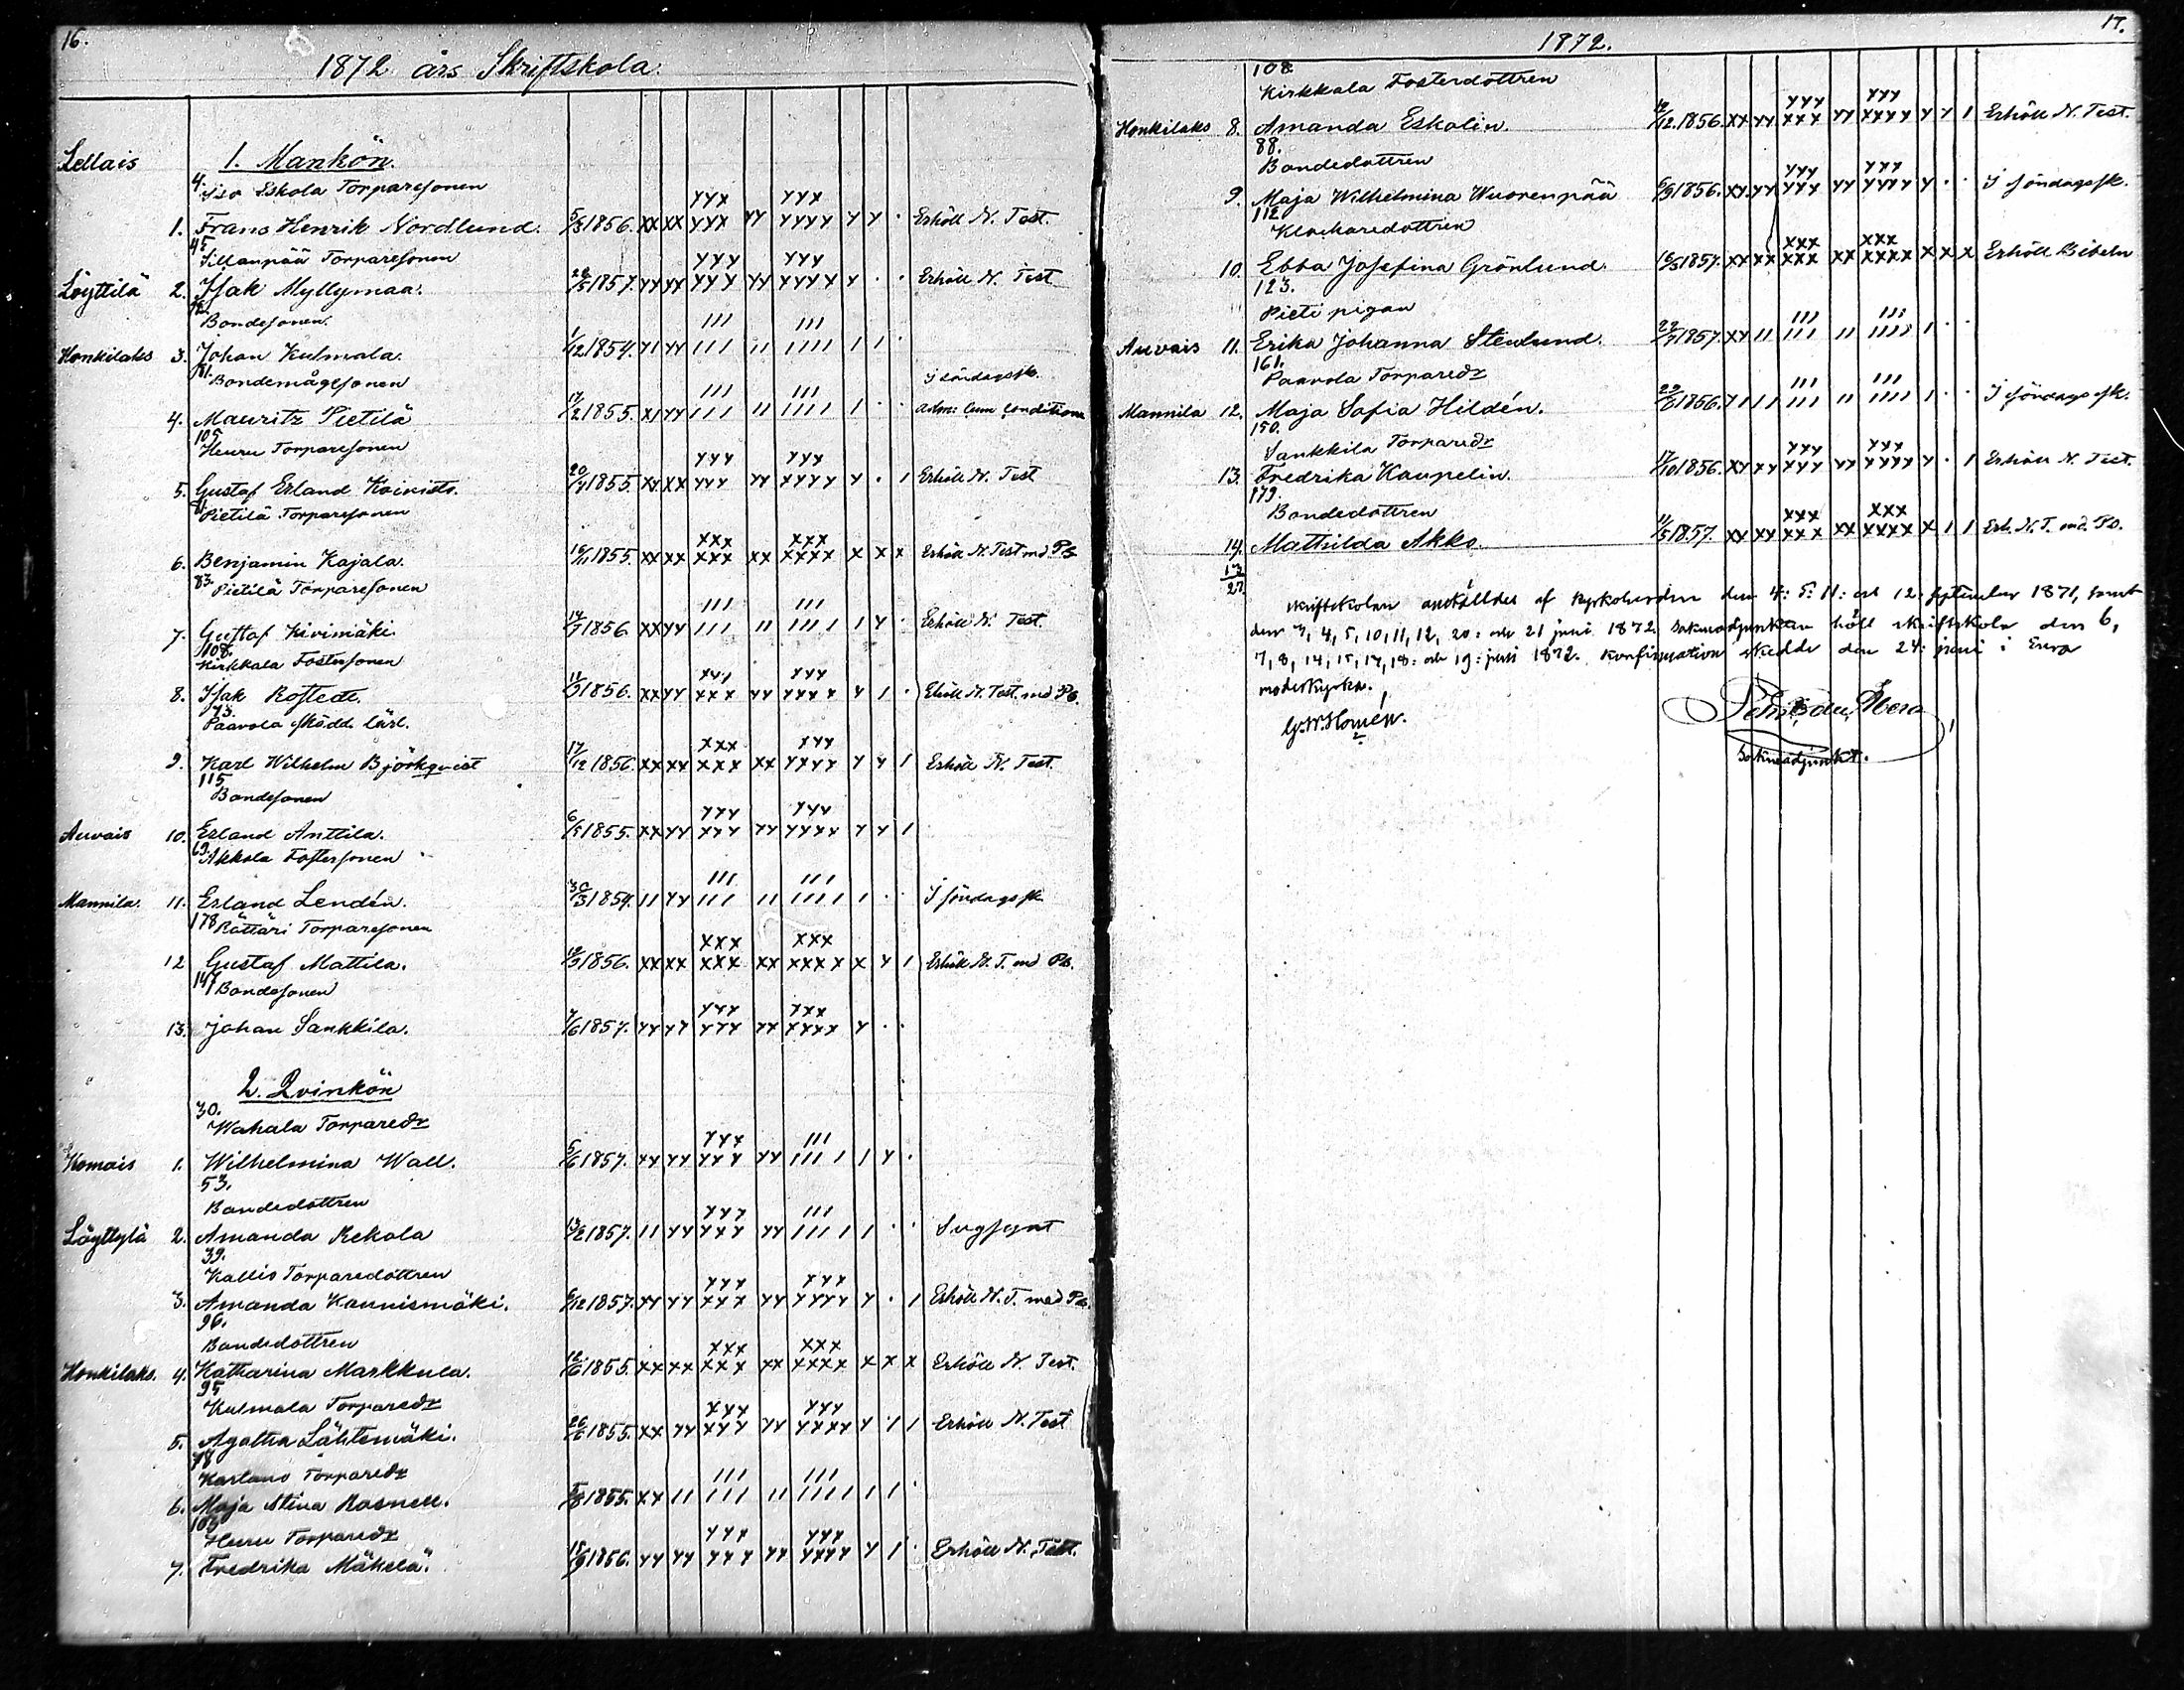 16.
1872 års Skriftskola.
Lellais 1. Mankön.
4. Iso Eskola Torparesonen
1. Frans Henrik Nordlund. 5/3 1856. xx xx yyy xxx yy yyy yyyy y y . Erhöll N. Test.
45. Sillanpää Torparesonen
Löyttilä 2. Isak Myllymaa. 28/5 1857. yy yy yyy yyy yy yyy yyyy y . . Erhöll N. Test
Bondesonen.
Honkilaks 3. Johan Kulmala. 1/12 1854. y1 yy 111 111 11 111 1111 1 1 .
81. Bondemågesonen I söndagssk.
4. Mauritz Pietilä 17/2 1855. x1 yy 111 111 11 111 1111 1 . . adm: cum conditione
105 Heuru Torparesonen
5. Gustaf Erland Koivisto. 20/4 1855. xy xx yyy yyy yy yyy yyyy y . 1 Erhöll N. Test
81. Pietilä Torparesonen
6. Benjamin Kajala. 16/11 1855. xx xx xxx xxx xx xxx xxxx x x x Erhöll N. Test md Ps
83. Pietilä Torparesonen
7. Gustaf Kivimäki. 14/7 1856. xx yy 111 111 11 111 1111 1 y . Erhöll N. Test.
108. Kirkkala Fostersonen
8. Isak Rostedt. 11/3 1856. xx yy xxx yy yyy xxxx y 1 . Erhöll N. Test. md Ps.
73. Paavola Skädd. lärl.
9. Karl Wilhelm Björkqvist 17/12 1856. xx xx xxx xxx xx xyy yyyy y y 1 Erhöll N. Test.
115 Bondesonen
Auvais 10. Erland Anttila. 6/5 1855. xx yy yyy xxy yy yyy yyxx y y 1
69. Akkola Fostersonen
Mannila. 11. Erland Lendén. 30/3 1854. 11 yy 111 111 11 111 1111 1 . . I söndagssk
178 Rättäri Torparesonen
12 Gustaf Mattila. 18/3 1856. xx xx xxx xxx xx xxx xxxx x y 1 Erhöll N. T. md Ps.
147 Bondesonen
13. Johan Sankkila. 7/6 1857. yy yy yyy yyy yy yxx xxxx y . .
2. Qvinkön
30. Wahala Torparedr
Komais 1. Wilhelmina Wall. 5/6 1857. yy yy yyy yyy yy 111 1111 1 y .
53.
Bondedottren
Löyttylä 2. Amanda Rekola 13/2 1857. 11 yy yyy yxy yy 111 1111 1 . .
39.
Kallio Torparedottren
3. Amanda Kaunismäki. 6/12 1857. yy yy yyy xxx yy xyy yyyy y . 1 Erhöll N. T. med Ps.
96.
Bondedottren
Honkilaks. 4. Katharina Markkula. 18/6 1855. xx xx xxx xxx xx xxx xxxx x x x Erhöll N. Test.
95
Kulmala Torparedr
5. Agatha Lähtemäki. 26/6 1855. xx yy xxy xyy yy yyy yyxy y 1 1 Erhöll N. Test
78
Kartano Torparedr
6. Maja Stina Rosnell. 5/8 1855. xy 11 111 111 11 111 1111 1 1 .
105
Heuru Torparedr
7. Fredrika Mäkelä. 15/9 1856. yy yy yyy yyy yy yyy yyyy y 1 . Erhöll N. Test.
17.
1872.
108
Kirkkala Fosterdottren
Honkilaks 8. Amanda Eskolin. 12/12 1856. xx yy yyy xxx yy yyy xxyy y y 1 Erhöll N. Test.
88.
Bondedottren
9. Maja Wilhelmina Wuorenpää 6/9 1856. xy yy yyy yyy yy yyy yyyy y . . I söndagssk.
112
Klockaredottren
10. Ebba Josefina Grönlund. 16/3 1857. xx xx xxx xxx xx xxx xxxx x x x Erhöll Bibeln
123.
Pieti pigan
Auvais 11. Erika Johanna Stenlund. 22/7 1857. xy 11 111 111 11 111 1111 1 . .
161.
Paavola Torparedr
Mannila 12. Maja Sofia Hildén. 29/6 1856. y1 11 111 111 11 111 1111 1 . . I söndagssk.
150.
Sankkila Torparedr
13. Fredrika Kaupelin. 17/10 1856. xy xy yyy yyy yy yyy yyyy y . 1 Erhöll N. Test.
179.
Bondedottren
14. Mathilda Akko. 11/5 1857. xx xy xxx xxx xx xxx xxxx x 1 1 Erh. N. T. md. Ps.
13
27
Skriftskolan anställdes af kyrkoherden den 4: 5: 11: och 12: september 1871, samt
den 3, 4, 5, 10, 11, 12, 20: och 21 juni 1872. Sokneadjunkten höll skriftskola den 6,
7, 8, 14, 15, 17, 18: och 19: juni 1872. Konfirmation skedde den 24: juni i Eura
moderkyrka.
G. W. Homén.
Sokneadjunkt.